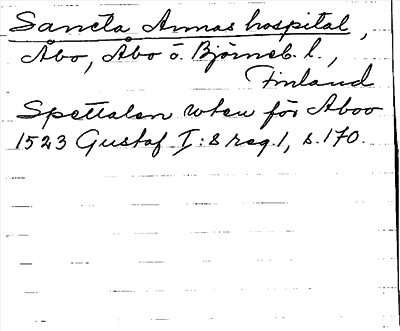 Sancta Annas hospital,
Åbo, Åbo o. Björneb. l.,
Finland
Spettalen uten för Aboo
1523 Gustaf I:s reg. 1, s. 170.